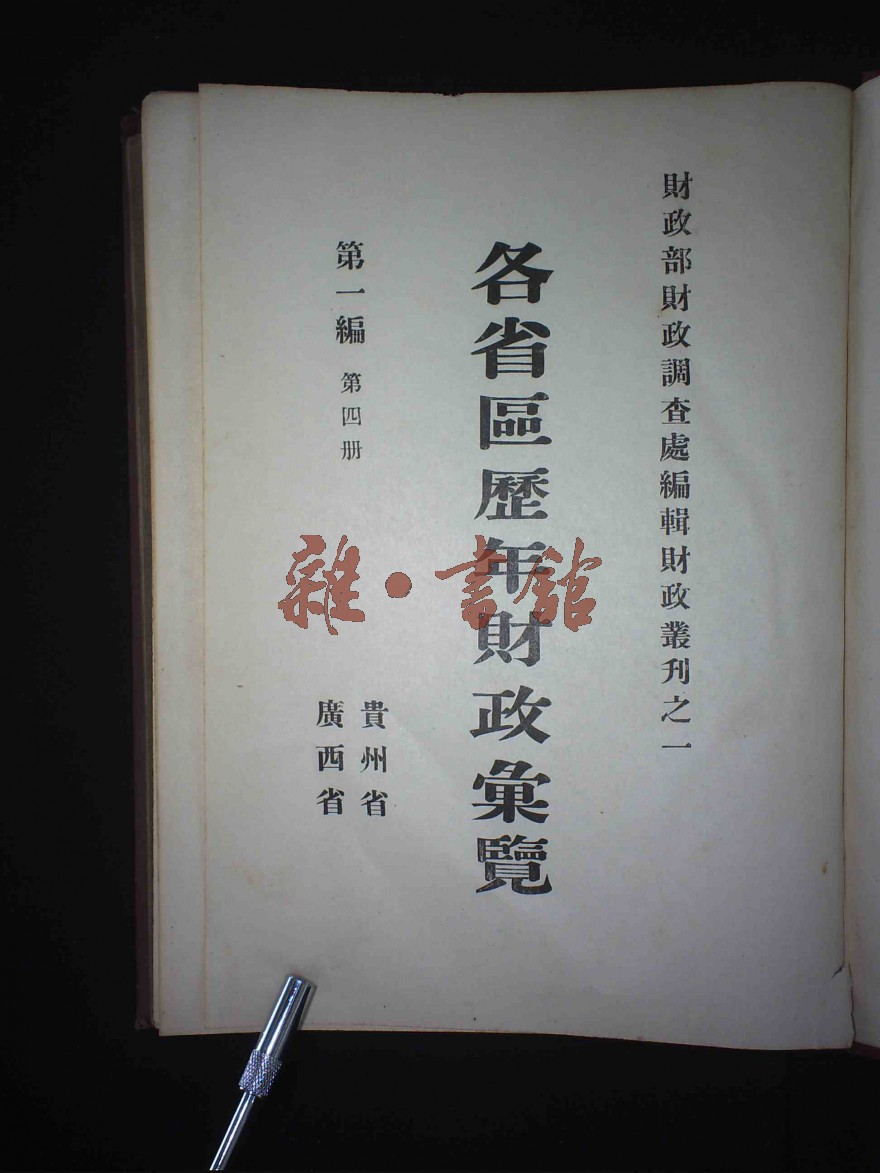 財政部財政調查處編輯財政叢刊之一
各省區歷年財政彙覽
第一編 第四册
貴州省
廣西省
雜·書館